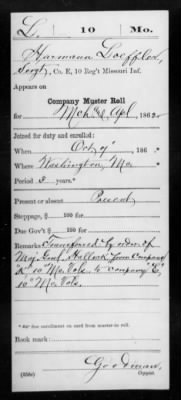 L. 10 Mo.
Harmann Loeffler,
Sergt, Co. E, 10 Reg't Missouri Inf.
Appears on
Company Muster Roll
for Mch & Apl, 1862.
Joined for duty and enrolled:
When Oct 9, 186
Where Washington, Mo.
Period 3 years.*
Present or absent Present
Stoppage, $ 100 for
Due Gov't $ 100 for
Remarks: Transferred by order of
Maj. Genl. Halleck from Company
K 10" Mo Vols. to Company "E,"
10" Mo Vols.
*See enrollment on card from muster-in roll.
Book mark:
Goodman,
(358c) Copyist.